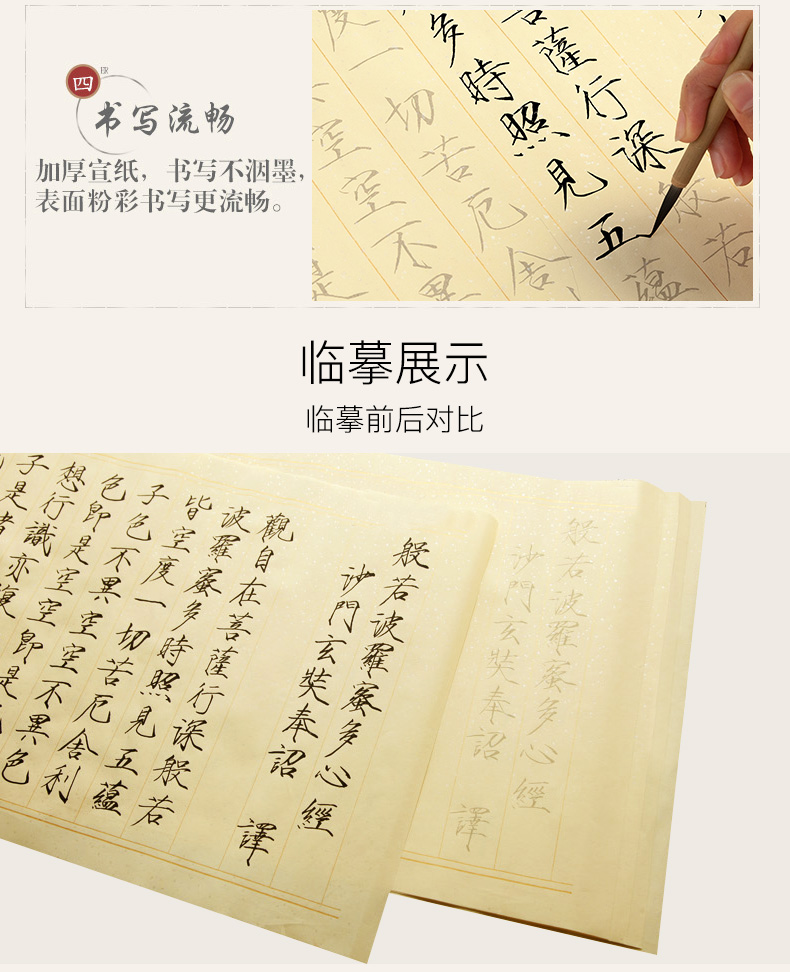 四
书写流畅
加厚宣纸，书写不洇墨，
表面粉彩书写更流畅。
菩薩行深般若
多時照見五蘊
度一切苦厄舍
空空不異
是
临摹展示
临摹前后对比
般若波羅蜜多心經
沙門玄奘奉詔 譯
觀自在菩薩行深般若
波羅蜜多時照見五蘊
皆空度一切苦厄舍利
子色不異空空不異色
色即是空空即是色
想行識亦復是
子是諸
般若波羅蜜多心經
沙門玄奘奉詔 譯